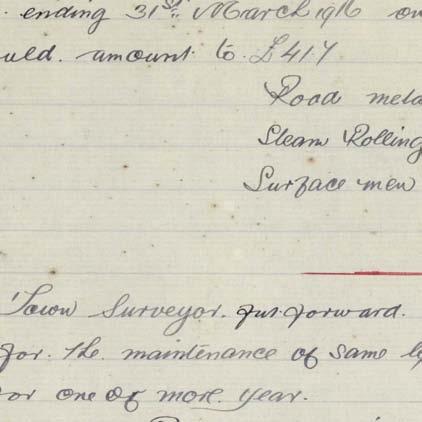 ending 31st March 1916 ou
uld. amount to £417
Road meta
Steam Rolling
Surface men
Town Surveyor. put forward.
for. the. maintenance of same by
or one or more. year.